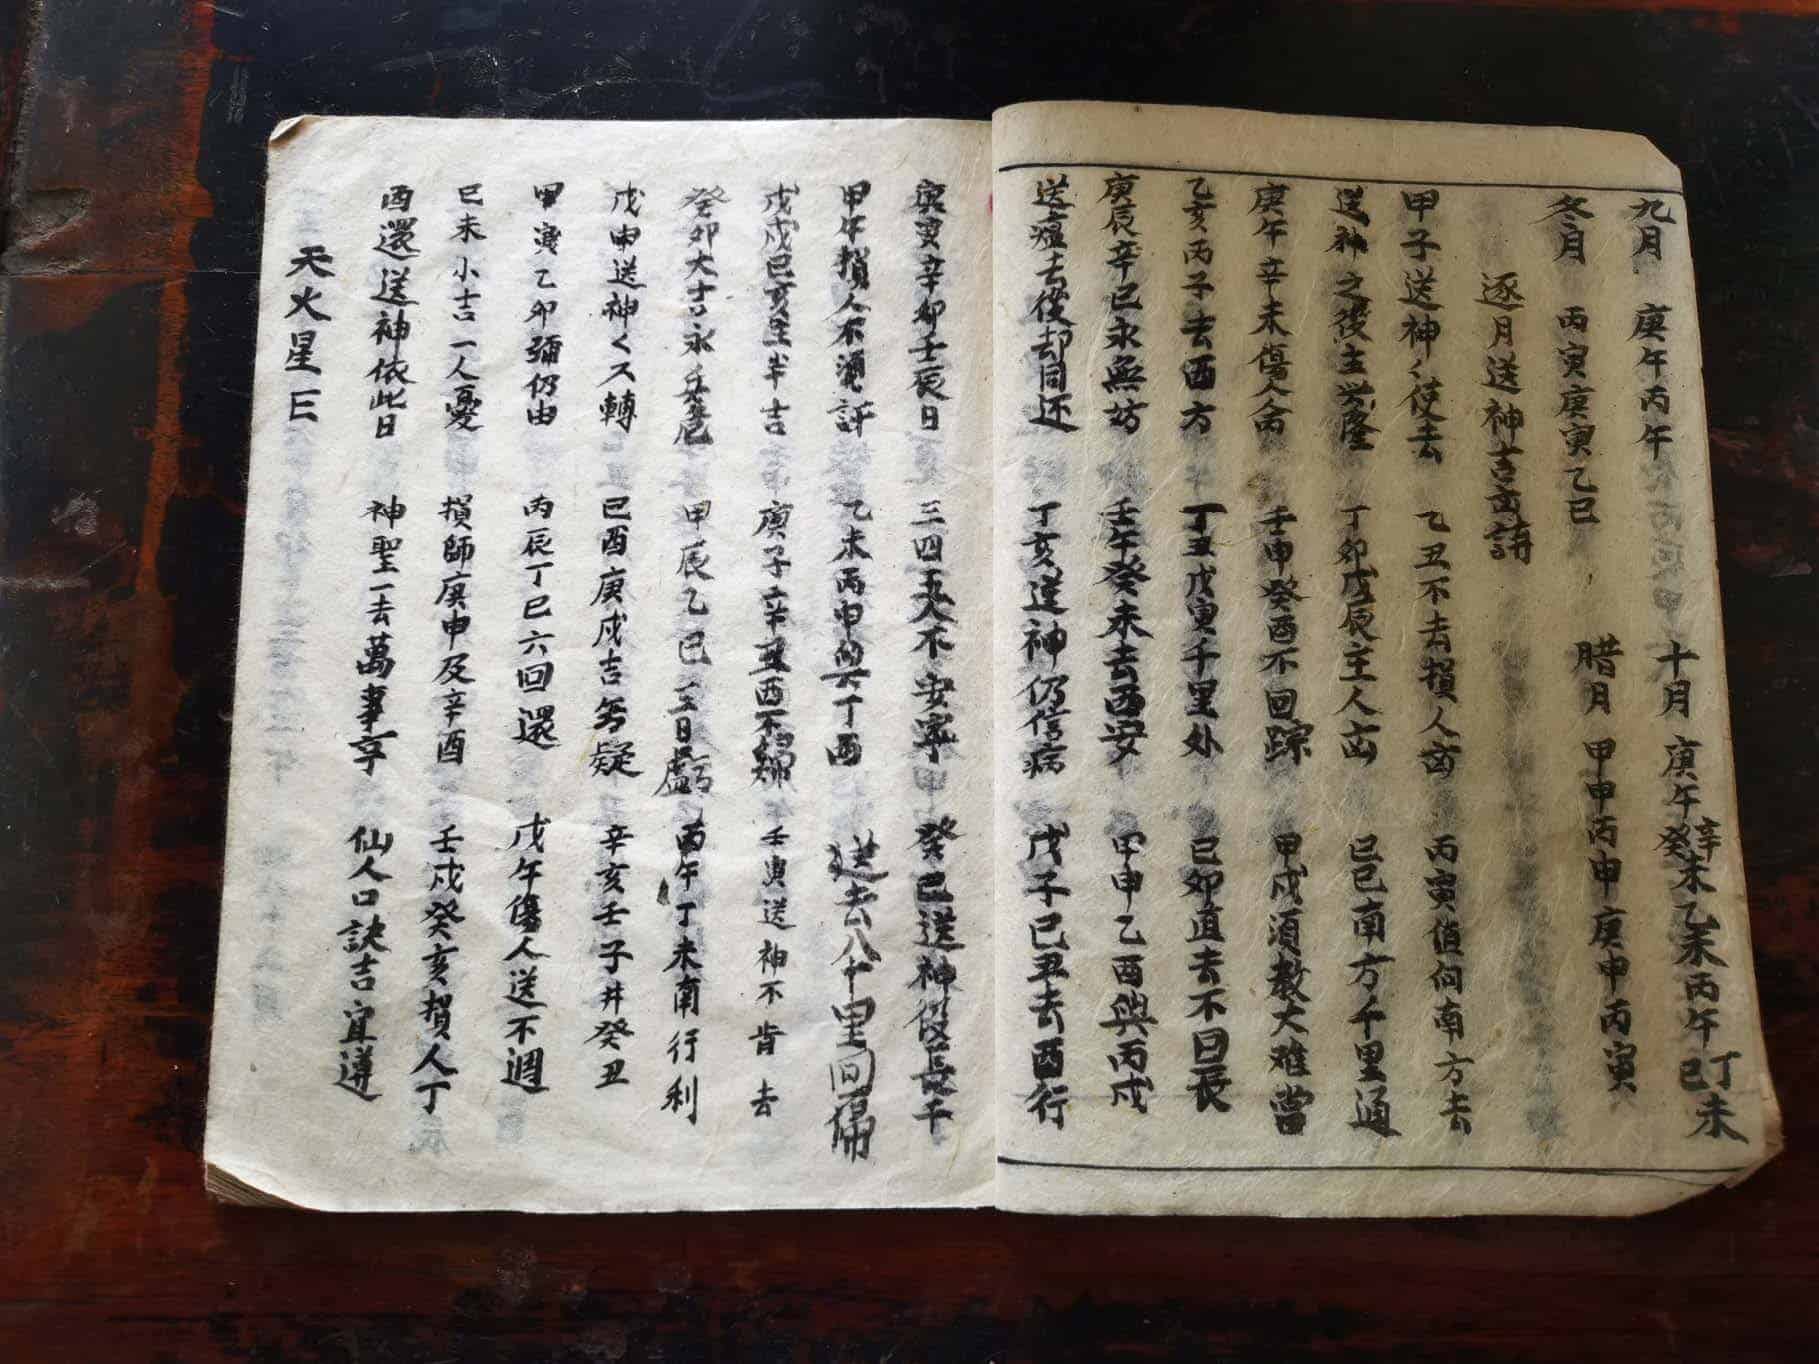 九月 庚午丙午 十月 庚午辛癸未乙未丙午丁巳未
冬月 丙寅庚寅乙巳 腊月 甲申丙申庚申丙寅
逐月送神吉凶訣
甲子送神〻使去 乙丑不去損人凶 丙寅值向南方去
送神之後主兴隆 丁卯戊辰主人凶 己巳南方千里通
庚午辛未傷人命 壬申癸酉不回踪 甲戍須教大难當
乙亥丙子去酉方 丁丑戊寅千里外 己卯直去不回辰
庚辰辛巳永無坊 壬午癸未去西安 甲申乙酉與丙戍
送瘟去後却同还 丁亥送神仍信病 戊子己丑去酉行
庚寅辛卯壬辰日 三四五人不安寧 癸巳送神後長千
甲午損人不 乙未丙申與丁酉 送去八千里回
戊戍己亥里半吉 庚子辛丑酉不歸 壬寅送神不肯去
癸卯大吉永兵危 甲辰乙巳三日 丙午丁未南行利
戊申送神〻又轉 己酉庚戍吉旡疑 辛亥壬子并癸丑
甲寅乙卯弥仍由 丙辰丁巳六回還 戊午傷人送不週
己未小吉一人憂 損師庚申及辛酉 壬戍癸亥損人丁
酉還送神依此日 神聖一去萬事亨 仙人口訣吉宜遵
天火星